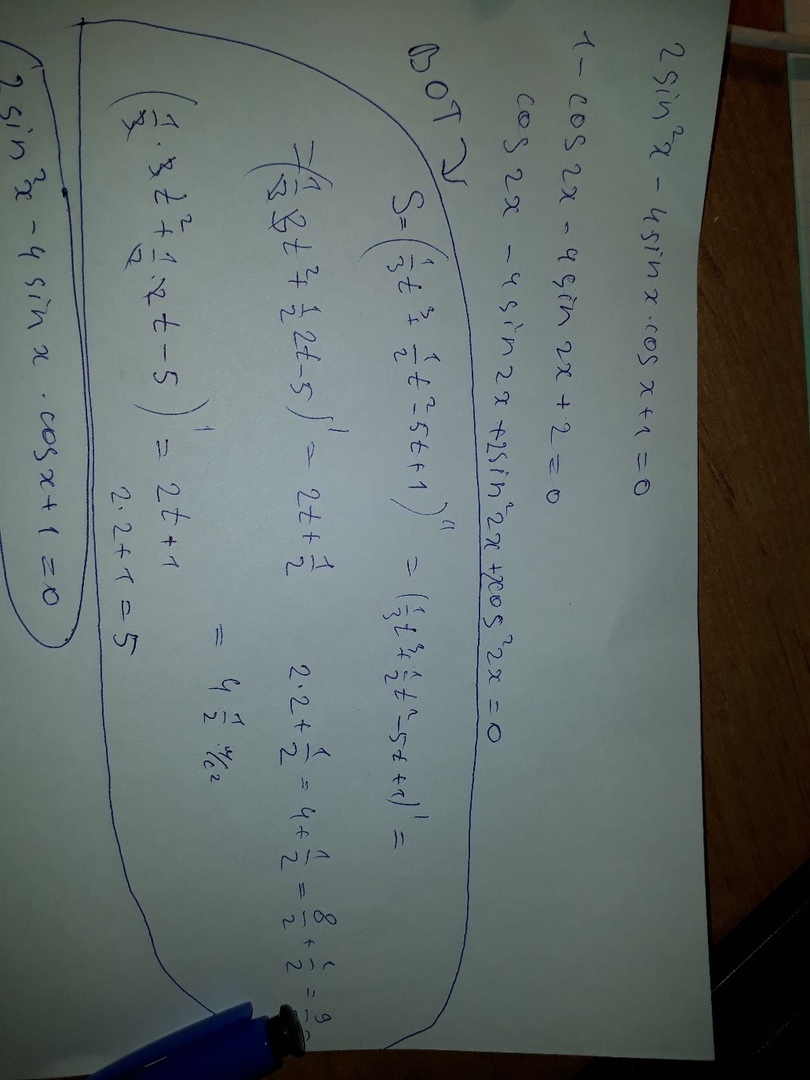 2 sin²x - 4 sin x · cos x + 1 = 0
1 - cos 2x - 4 sin 2x + 2 = 0
cos 2x - 4 sin 2x + 2 sin² 2x + cos² 2x = 0
ВОТ ↘
S = (1/3 t³ + 1/2 t² - 5t + 1)'' = (1/3 t³ + 1/2 t² - 5t + 1)' =
= (1/3 3t² + 1/2 2t - 5)' = 2t + 1/2 2·2 + 1/2 = 4 + 1/2 = 8/2 + 1/2 = 9/2
= 4 1/2 м/с²
(1/3 · 3t² + 1/2 · 2t - 5)' = 2t + 1
2·2 + 1 = 5
2 sin²x - 4 sin x · cos x + 1 = 0